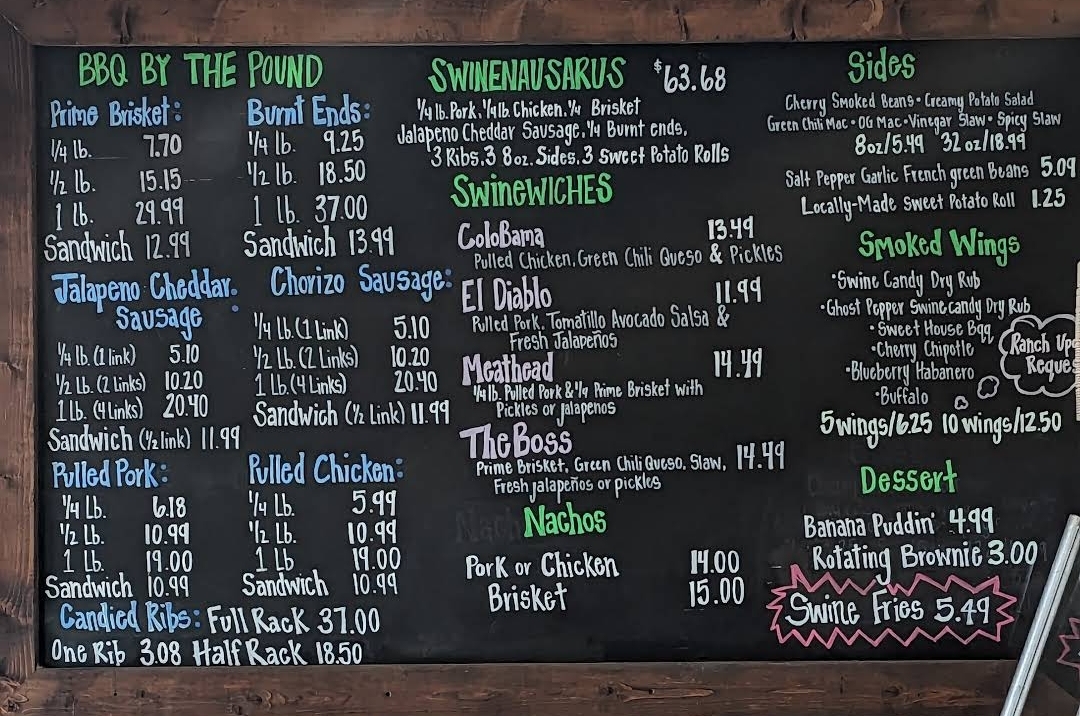 BBQ BY THE POUND
Prime Brisket:
1/4 lb. 7.70
1/2 lb. 15.15
1 lb. 29.99
Sandwich 12.99
Burnt Ends:
1/4 lb. 9.25
1/2 lb. 18.50
1 lb. 37.00
Sandwich 13.99
Jalapeno Cheddar
Sausage:
1/4 lb. (1 link) 5.10
1/2 lb. (2 Links) 10.20
1 lb. (4 Links) 20.40
Sandwich (1/2 link) 11.99
Chorizo Sausage:
1/4 lb. (1 Link) 5.10
1/2 lb. (2 Links) 10.20
1 lb. (4 Links) 20.40
Sandwich (1/2 Link) 11.99
Pulled Pork:
1/4 lb. 6.18
1/2 lb. 10.99
1 lb. 19.00
Sandwich 10.99
Pulled Chicken:
1/4 lb. 5.99
1/2 lb. 10.99
1 lb 19.00
Sandwich 10.99
Candied Ribs: Full Rack 37.00
One Rib 3.08 Half Rack 18.50
SWINENAUSARUS $63.68
1/4 lb. Pork, 1/4 lb Chicken, 1/4 Brisket
Jalapeno Cheddar Sausage, 1/4 Burnt ends,
3 Ribs, 3 8oz. Sides, 3 Sweet Potato Rolls
SWineWICHES
ColoBama 13.49
Pulled Chicken, Green Chili Queso & Pickles
El Diablo 11.99
Pulled Pork, Tomatillo Avocado Salsa &
Fresh Jalapeños
Meathead 14.49
1/4 lb. Pulled Pork & 1/4 Prime Brisket with
Pickles or jalapenos
The Boss 14.49
Prime Brisket, Green Chili Queso, Slaw,
Fresh jalapeños or pickles
Nachos
Pork or Chicken 14.00
Brisket 15.00
Sides
Cherry Smoked Beans • Creamy Potato Salad
Green Chili Mac • OG Mac • Vinegar Slaw • Spicy Slaw
8oz/5.49 32 oz/18.99
Salt Pepper Garlic French green Beans 5.09
Locally-Made Sweet Potato Roll 1.25
Smoked Wings
•Swine Candy Dry Rub
•Ghost Pepper Swinecandy Dry Rub
•Sweet House Bqq
•Cherry Chipotle
•Blueberry Habanero
•Buffalo
Ranch Upo
Reques
5 wings/6.25 10 wings/12.50
Dessert
Banana Puddin' 4.99
Rotating Brownie 3.00
Swine Fries 5.49